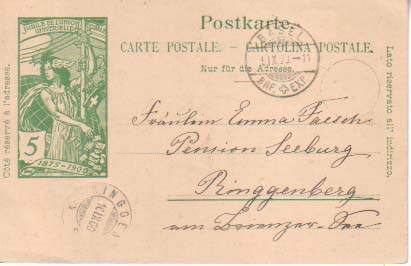 Postkarte.
CARTE POSTALE. - CARTOLINA POSTALE.
Nur für die Adresse.
JUBILÉ DE L'UNION
UNIVERSELLE
5
1875-1900
Côté réservé à l'adresse.
Lato riservato all' indirizzo.
BASEL
BRF. EXP.
Fräulein Emma Paesch
Pension Seeburg
Ringgenberg
am Brienzer-See
RINGGE
1.IX.00